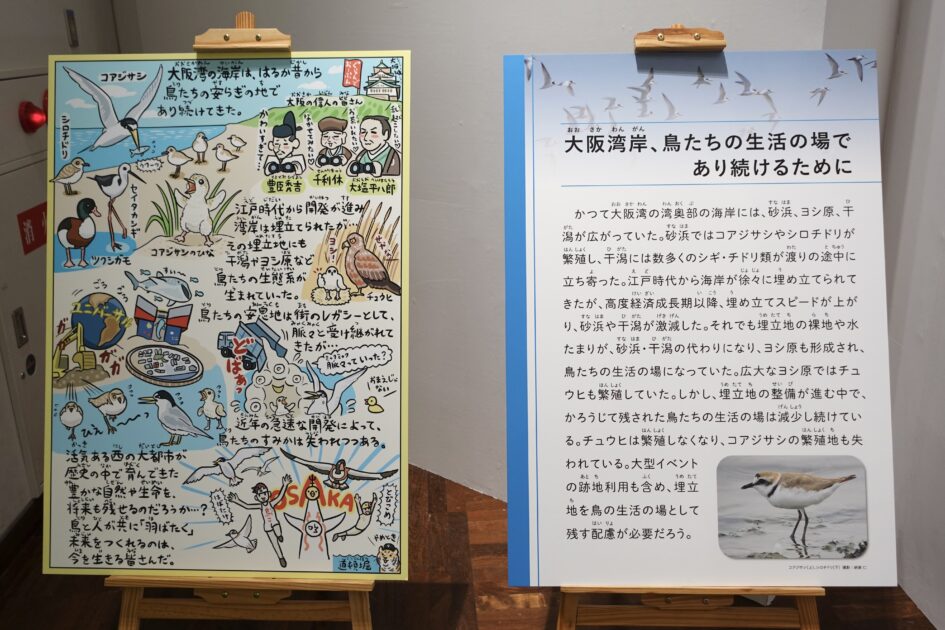 コアジサシ
大阪湾の海岸は、はるか昔から
鳥たちの安らぎの地で
あり続けてきた。
シロチドリ
セイタカシギ
ツクシガモ
コアジサシのひな
大阪の偉人の皆さん
かわいすぎて…
豊臣秀吉
千利休
大塩平八郎
江戸時代から開発が進み
湾岸は埋立てられたが
その埋立地にも
干潟やヨシ原など
鳥たちの生態系が
生まれていった。
ヨシ!
チュウヒ
すいーっ
ごろごろ
ユニバーサル
ガガガ
鳥たちの安息地は街のレガシーとして、
脈々と受け継がれて
きたが…
どばぁっ
脈々っていった?
おまえじゃ
ない
ひぇ〜っ
近年の急速な開発によって、
鳥たちのすみかは失われつつある。
活気ある西の大都市が
歴史の中で育んできた
豊かな自然や生命を、
将来も残せるのだろうか…?
鳥と人が共に「羽ばたく」
未来をつくれるのは、
今を生きる皆さんだ。
OSAKA
道頓堀
やめとき
大阪湾岸、鳥たちの生活の場で
あり続けるために
かつて大阪湾の湾奥部の海岸には、砂浜、ヨシ原、干
潟が広がっていた。砂浜ではコアジサシやシロチドリが
繁殖し、干潟には数多くのシギ・チドリ類が渡りの途中に
立ち寄った。江戸時代から海岸が徐々に埋め立てられて
きたが、高度経済成長期以降、埋め立てスピードが上が
り、砂浜や干潟が激減した。それでも埋立地の裸地や水
たまりが、砂浜・干潟の代わりになり、ヨシ原も形成され、
鳥たちの生活の場になっていった。広大なヨシ原ではチュ
ウヒも繁殖していた。しかし、埋立地の整備が進む中で、
かろうじて残された鳥たちの生活の場は減少し続けてい
る。チュウヒは繁殖しなくなり、コアジサシの繁殖地も失
われている。大型イベント
の跡地利用も含め、埋立
地を鳥の生活の場として
残す配慮が必要だろう。